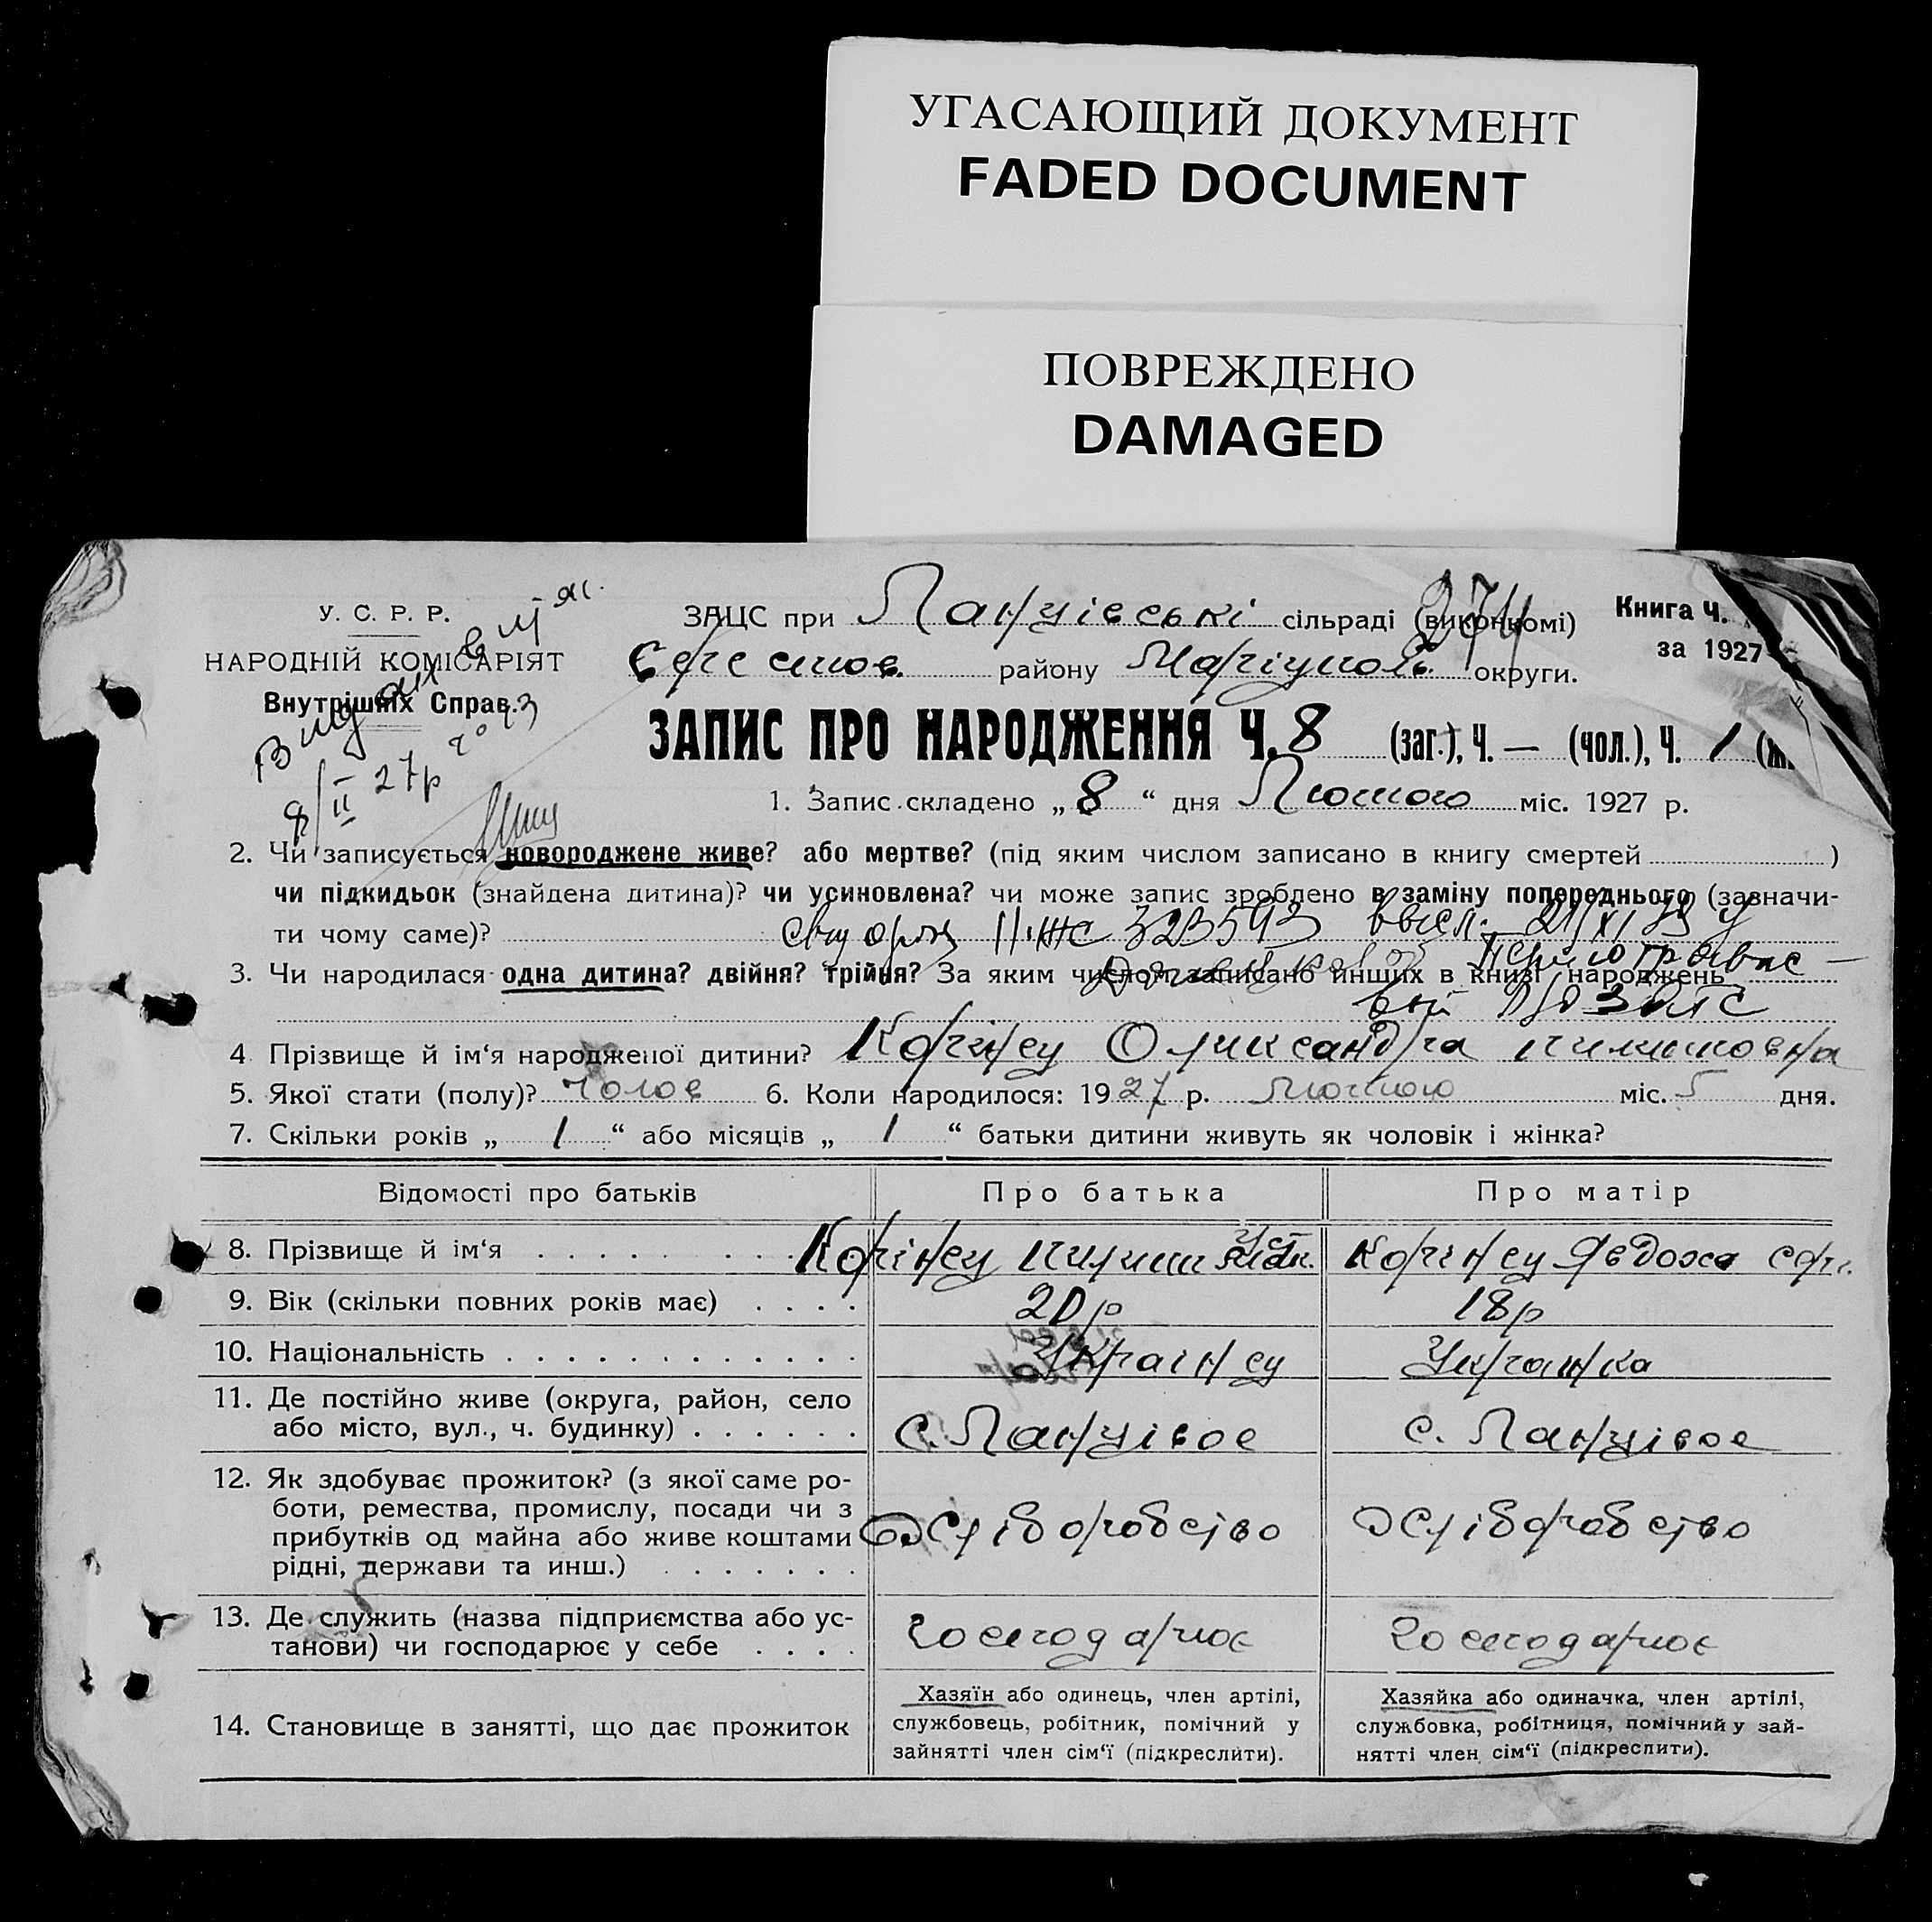 УГАСАЮЩИЙ ДОКУМЕНТ
FADED DOCUMENT
ПОВРЕЖДЕНО
DAMAGED
У. С. Р. Р.
НАРОДНІЙ КОМІСАРІЯТ
Внутрішніх Справ.
8/II 27р
274
ЗАЦС при Ланцівські сільраді (виконкомі)
району Маріупольс. округи.
Книга Ч.
за 1927
ЗАПИС ПРО НАРОДЖЕННЯ Ч. 8 (заг.), Ч. — (чол.), Ч. 1
1. Запис складено „ 8 “ дня Лютого міс. 1927 р.
2. Чи записується новороджене живе? або мертве? (під яким числом записано в книгу смертей )
чи підкидьок (знайдена дитина)? чи усиновлена? чи може запис зроблено в заміну попереднього (зазначи-
ти чому саме)? 323593
3. Чи народилася одна дитина? двійня? трійня? За яким числом записано инших в книзі народжень
4 Прізвище й ім‘я народженої дитини?
5. Якої статі (полу)? чолов 6. Коли народилося: 1927 р. Лютого міс. 5 дня.
7. Скільки років „ 1 “ або місяців „ 1 “ батьки дитини живуть як чоловік і жінка?
Відомості про батьків Про батька Про матір
8. Прізвище й ім‘я
9. Вік (скільки повних років має) 20р 18р
10. Національність Українец Українка
11. Де постійно живе (округа, район, село
або місто, вул., ч. будинку) с. Ланцівое с. Ланцівое
12. Як здобуває прожиток? (з якої саме ро-
боти, ремества, промислу, посади чи з
прибутків од майна або живе коштами
рідні, держави та инш.) Хліборобство Хліборобство
13. Де служить (назва підприємства або ус-
танови) чи господарює у себе господарює господарює
14. Становище в занятті, що дає прожиток
Хазяїн або одинець, член артілі,
службовець, робітник, помічний у
зайнятті член сім‘ї (підкреслити).
Хазяйка або одиначка, член артілі,
службовка, робітниця, помічний у зай-
нятті член сім‘ї (підкреслити).